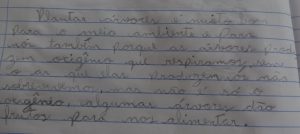 Plantar árvores é muito bom
para o meio ambiente e para
nós também porque as árvores prod
zem oxigênio que respiramos, sem
o ar que elas produzem nós não
sobrevivemos, mas não é só o
oxigênio, algumas árvores dão
frutos para nos alimentar.